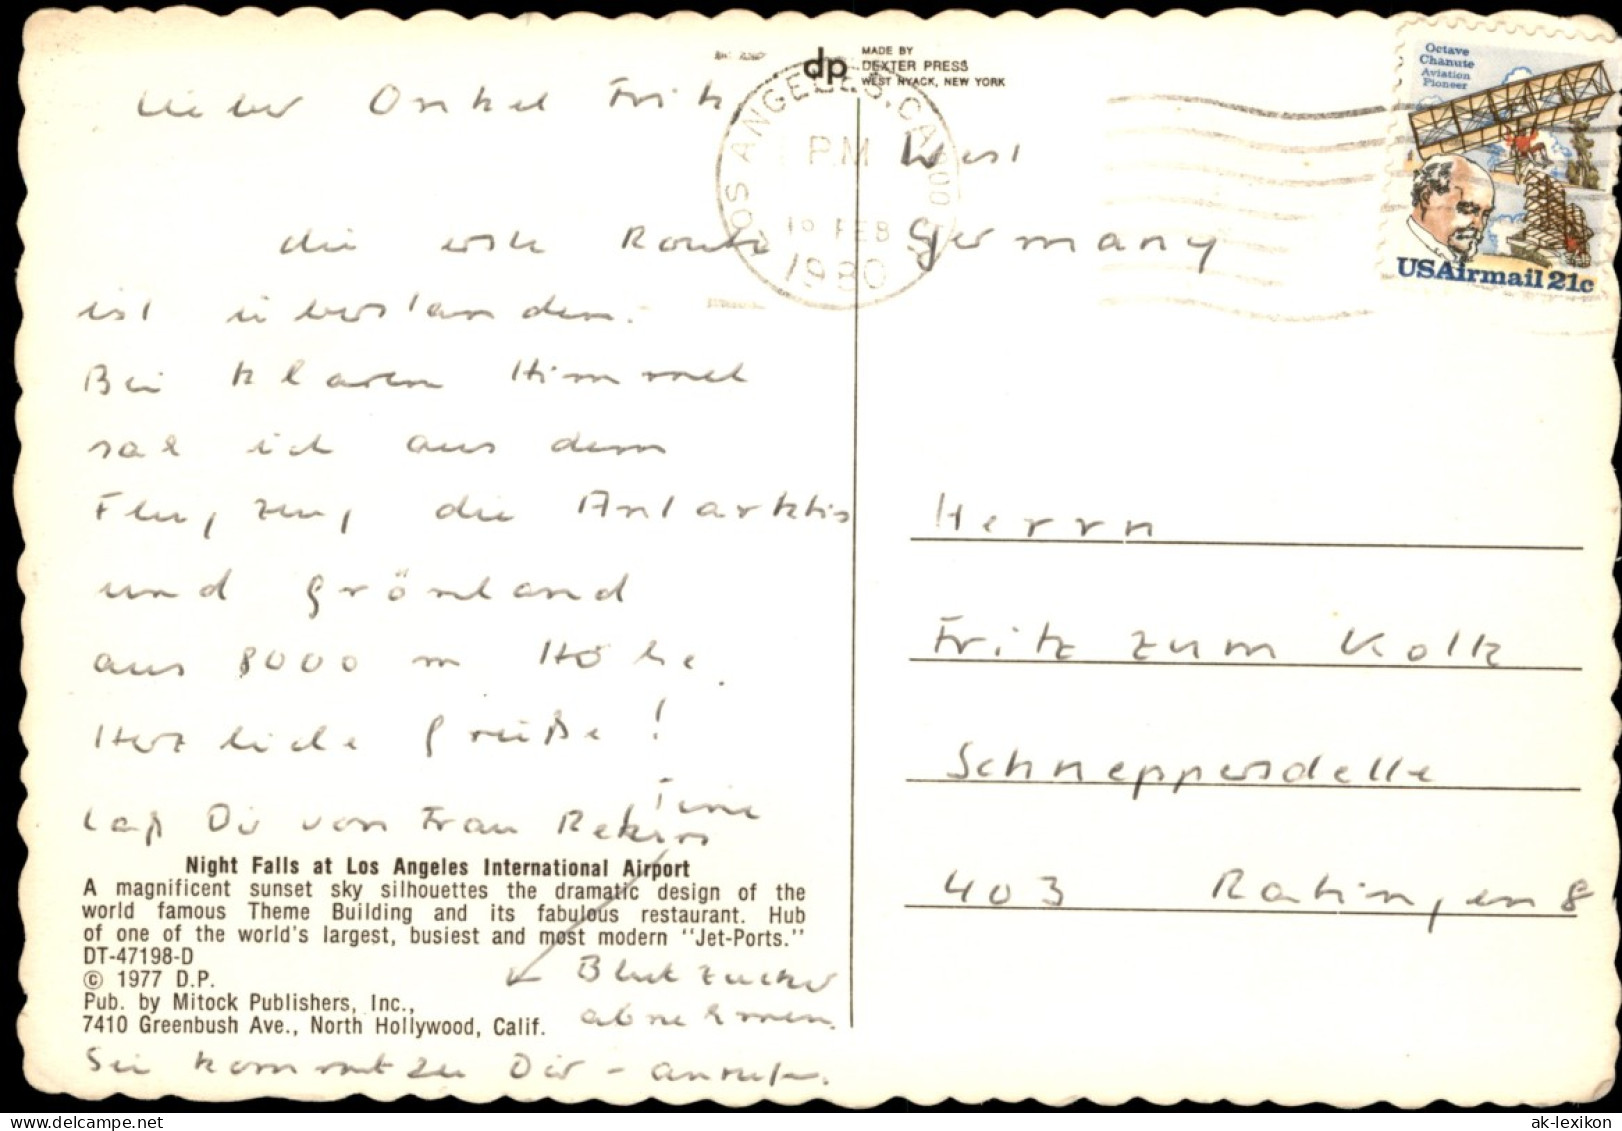 dp MADE BY
DEXTER PRESS
WEST NYACK, NEW YORK
Octave
Chanute
Aviation
Pioneer
USAirmail 21c
LOS ANGELES, CA 900
PM
FEB
1980
Lieber Onkel Fritz
die erste Route
ist überstanden.
Bei klarem Himmel
sah ich aus dem
Flugzeug die Antarktis
und Grönland
aus 8000 m Höhe.
Herzliche Grüße!
Tine
Laß Dir von Frau Rekers
Blutzucker
abnehmen.
Sie kommt zu Dir - anrufen.
Night Falls at Los Angeles International Airport
A magnificent sunset sky silhouettes the dramatic design of the
world famous Theme Building and its fabulous restaurant. Hub
of one of the world's largest, busiest and most modern "Jet-Ports."
DT-47198-D
© 1977 D.P.
Pub. by Mitock Publishers, Inc.,
7410 Greenbush Ave., North Hollywood, Calif.
West
Germany
Herrn
Fritz zum Kolk
Schneppersdelle
403 Ratingen 8
ak-lexikon